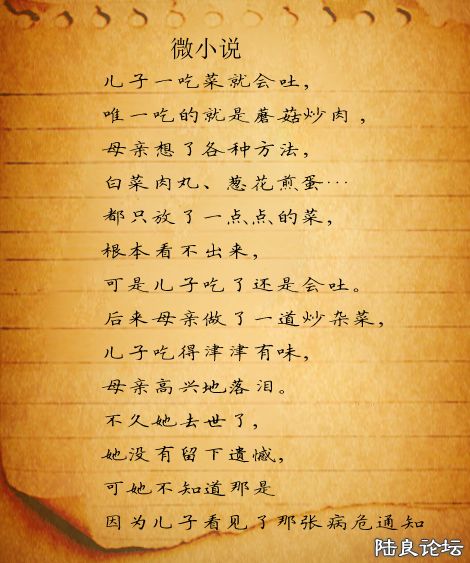 微小说
儿子一吃菜就会吐，
唯一吃的就是蘑菇炒肉，
母亲想了各种方法，
白菜肉丸、葱花煎蛋…
都只放了一点点的菜，
根本看不出来，
可是儿子吃了还是会吐。
后来母亲做了一道炒杂菜，
儿子吃得津津有味，
母亲高兴地落泪。
不久她去世了，
她没有留下遗憾，
可她不知道那是
因为儿子看见了那张病危通知
陆良论坛